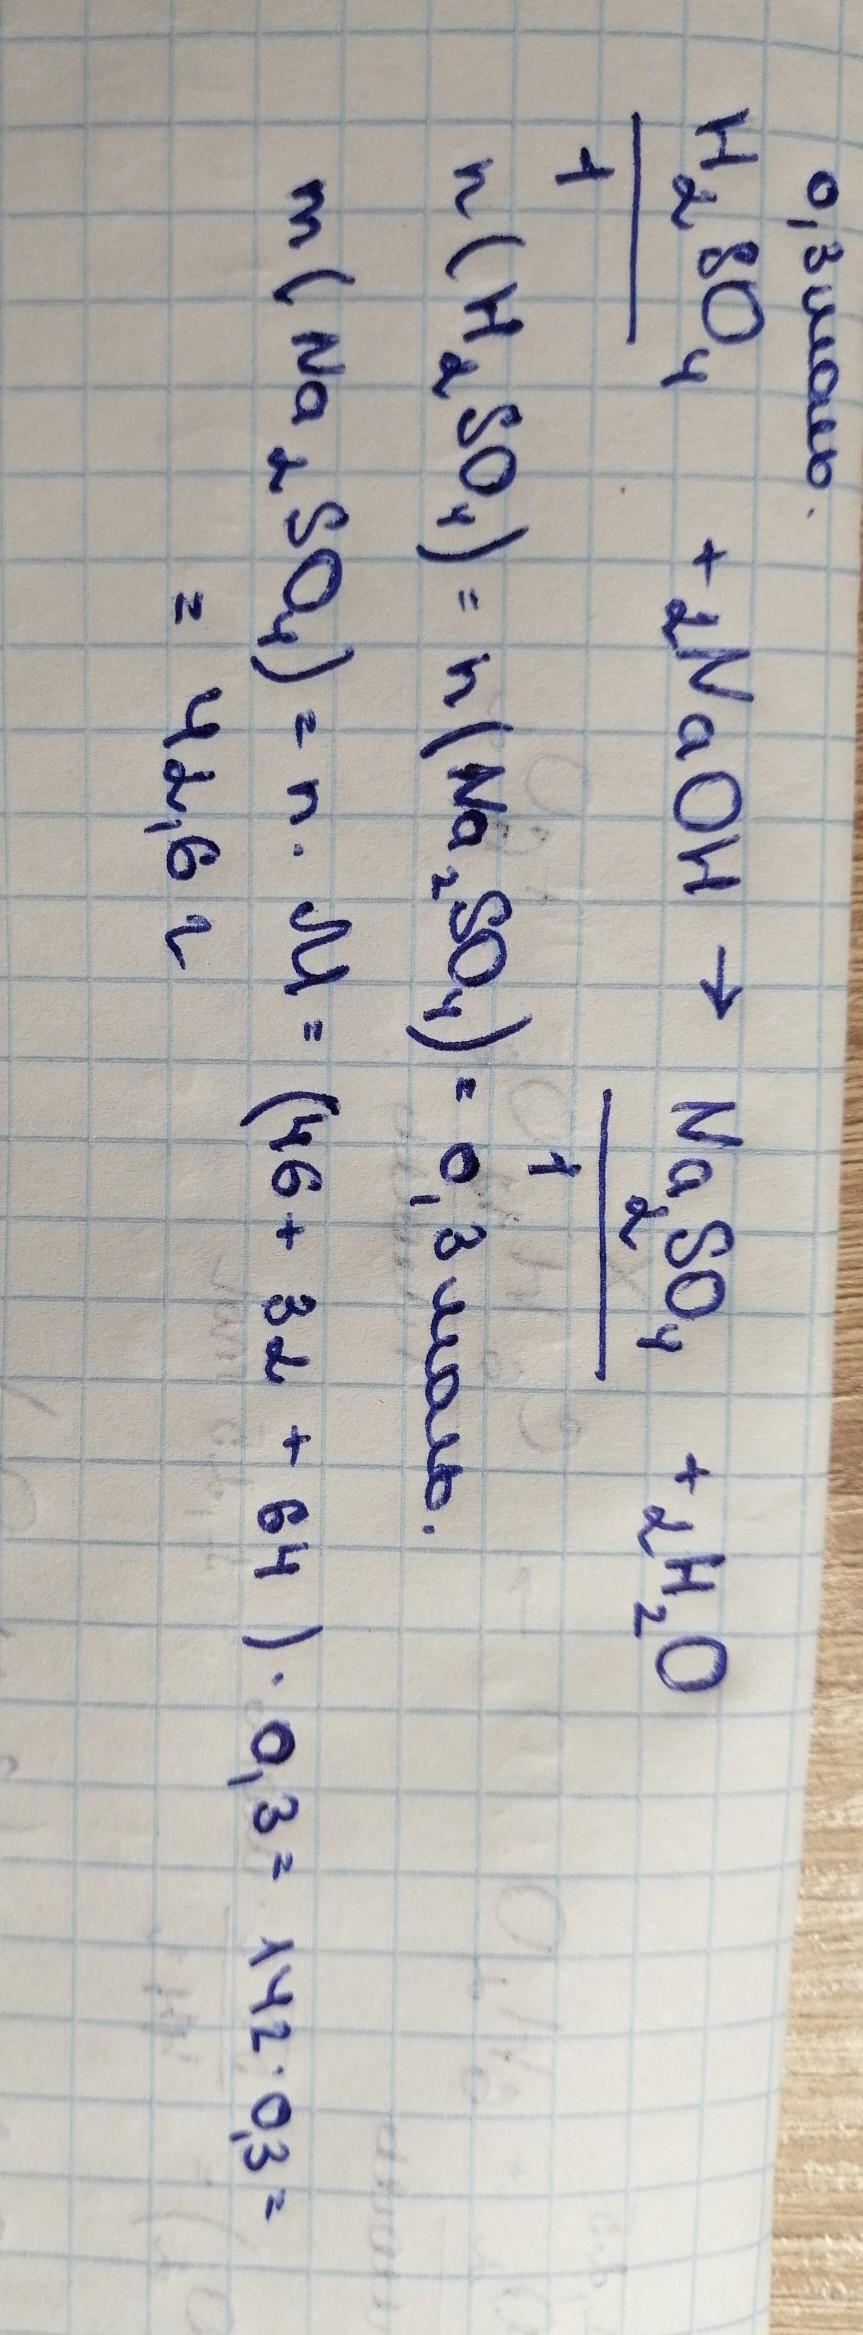 0,3 моль.
H₂SO₄ + 2NaOH → Na₂SO₄ + 2H₂O
1 1
n(H₂SO₄) = n(Na₂SO₄) = 0,3 моль.
m(Na₂SO₄) = n · M = (46 + 32 + 64) · 0,3 = 142 · 0,3 =
= 42,6 г